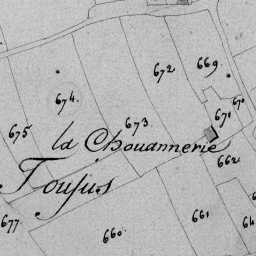 672 669
674.
671 670
675 673
la Chouannerie
662
Toufus
677 660 661